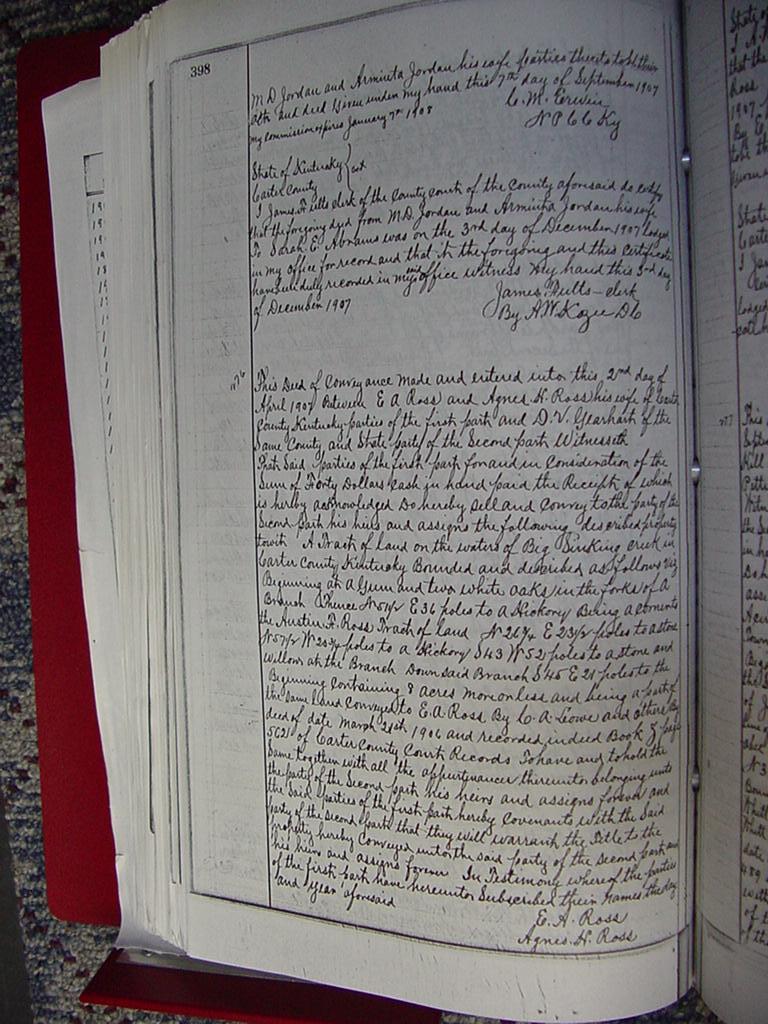 398
M D Jordan and Arminta Jordan his wife parties thereto to be their
act and deed Given under my hand this 7th day of September 1907
my commission expires January 7th 1908
C. M. Erwin
N P C C Ky
State of Kentucky
Carter County } sct
I James Fults clerk of the County court of the County aforesaid do certify
that the foregoing deed from M.D. Jordan and Arminta Jordan his wife
To Sarah E. Abrams was on the 3rd day of December 1907 lodged
in my office for record and that it the foregoing and this certificate
have been duly recorded in my said office witness my hand this 3rd day
of December 1907
James Fults - clerk
By A W Kozee D C
This Deed of Conveyance made and entered into this 2nd day of
April 1907 Between E A Ross and Agnes H. Ross his wife of Carter
County Kentucky parties of the first part and D. V. Gearhart of the
Same County and State party of the Second part Witnesseth
That Said parties of the first part for and in Consideration of the
Sum of Forty Dollars cash in hand paid the Receipt of which
is hereby acknowledged Do hereby Sell and Convey to the party of the
Second part his heirs and assigns the following described property
towit A Tract of land on the waters of Big Sinking creek in
Carter County Kentucky Bounded and described as follows viz
Beginning at a Gum and two white oaks in the forks of A
Branch Thence N 51/2 E 36 poles to a Hickory Being a corner to
the Austin F. Ross Tract of land N 26 3/4 E 23 1/2 poles to a stone
N 57 1/2 W 20 3/4 poles to a Hickory S 43 W 52 poles to a stone and
willows at the Branch Down said Branch S 45 E 21 poles to the
Beginning Containing 8 acres more or less and being a part of
the same land conveyed to E. A. Ross By C. A. Lowe and others By
deed of date March 28th 1906 and recorded in deed Book Z page
562 of Carter County Court Records To have and to hold the
same together with all the appurtenances thereunto belonging unto
the party of the Second part his heirs and assigns forever and
the said parties of the first part hereby Covenants with the Said
party of the second part that they will warrant the Title to the
property hereby Conveyed unto the said party of the second part and
his heirs and assigns forever In Testimony whereof the parties
of the first part have hereunto Subscribed their names the day
and year aforesaid
E. A. Ross
Agnes. H. Ross